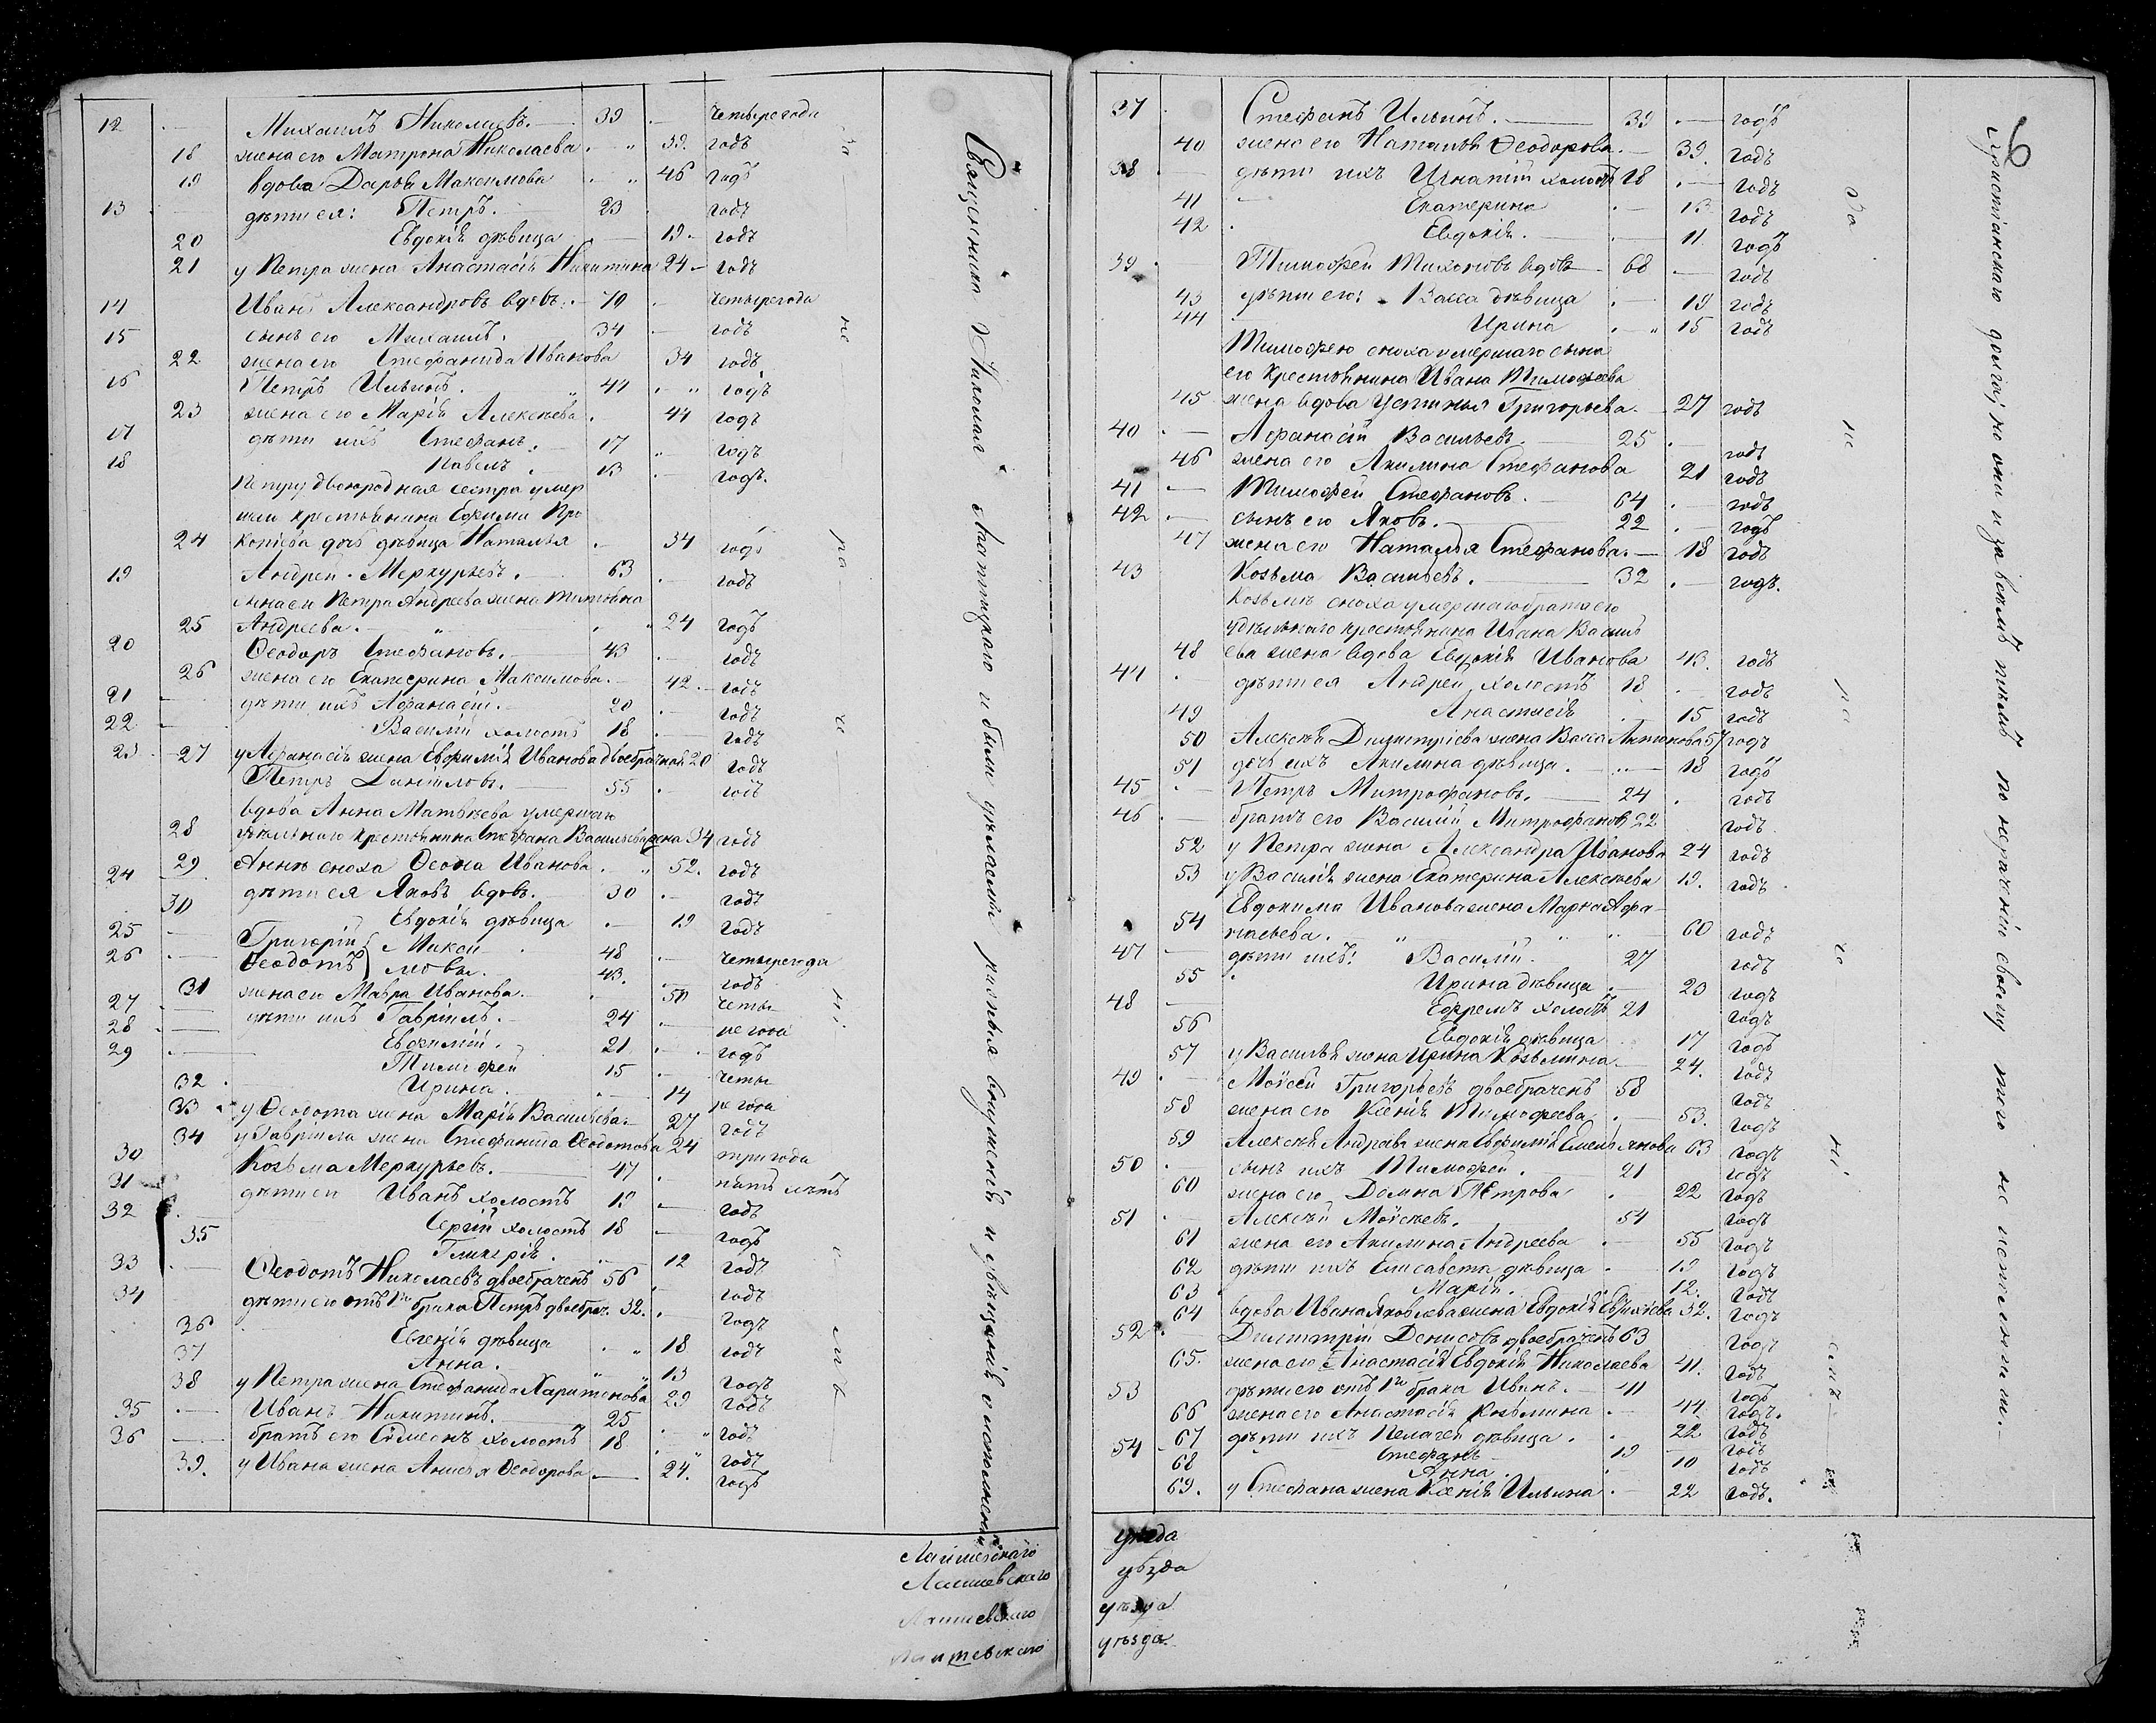 12 — Михаилъ Николаевъ. 39 — четыре года
18 жена его Матрона Николаева — " 39. годъ
19 вдова Дарья Максимова — " 46 годъ
13 — дѣти ея: Петръ. 23 годъ
20 Евдокія дѣвица — 19 — годъ
21 у Петра жена Анастасія Никитина 24 — годъ
14 Иванъ Александровъ вдовъ. — 70 — четыре года
15 сынъ его Михаилъ. 34 — годъ
22 жена его Стефанида Иванова 34 годъ
16 Петръ Ильинъ. " 41 — " годъ
23 жена его Марія Алексѣева . 44 годъ
17 дѣти ихъ Стефанъ. 17 " годъ
18 Павелъ. 13 — годъ.
Петру двоюродная сестра умер
шаго крестьянина Ефима Про
24 копіева дочь дѣвица Наталья — 34 годъ
19 Андрей Меркурьевъ. 63 — годъ
сына его Петра Андреева жена
25 Андреева. — " 24 годъ
20 Ѳеодоръ Стефановъ. 43 — годъ
26 жена его Екатерина Максимова. — 42 — годъ
21 — дѣти ихъ Афанасій. 20 — годъ
22 — Василій холостъ 18 — годъ
23 — 27 у Афанасія жена Евфимія Иванова двоебрачная 20 годъ
Петръ Даніиловъ. 55 . годъ
вдова Анна Матвѣева умершаго
28 удѣльнаго крестьянина Стефана Васильева жена 94 годъ
29 Аннѣ сноха Ѳеона Иванова . " 52. годъ
24 — дѣти ея Яковъ вдовъ. 30 — годъ
30 Евдокія дѣвица — 19 годъ
25 — Григорій } Никои 48 — четыре года
26 — Ѳеодотъ } мовы. 43. — годъ
31 жена его Мавра Иванова. — 50 четы
27 — дѣти ихъ Гавріилъ. 24 — ре года
28 — Евфимій. 21 — годъ
29 — Тимофей 15 — четы
32 Ирина. — 14 ре года
33 у Ѳеодота жена Марія Васильева — 27 годъ
34 у Гавріила жена Стефанида Ѳеодотова 24 три года
30 Козьма Меркурьевъ. 47 . пять лѣтъ
31 дѣти его Иванъ холостъ 19 — годъ
32 — Сергій холостъ 18 — годъ
35 Гликерія. — 12 годъ
33 — Ѳеодотъ Николаевъ двоебраченъ 56 годъ
34 дѣти его отъ 1го брака Петръ двоебрач. 32. — годъ
36 Евгенія дѣвица — " 18 годъ
37 Анна. " 13 годъ
38 у Петра жена Стефанида Харитонова 29 годъ
35 — Иванъ Никитинъ. 25 — " годъ
36 — братъ его Симеонъ холостъ 18 — " годъ
39. у Ивана жена Анисья Ѳеодорова — 24. годъ
За не и мѣ
Священника Николая и были дѣлаемы разныя внушенія и увѣщанія о исполненіи
Лаишевскаго
Лаишевскаго
Лаишевскаго
Лаишевскаго
37 . Стефанъ Ильинъ. — 39 — годъ
40 жена его Наталья Ѳеодорова. — 39. годъ
38 — дѣти ихъ Игнатій холостъ 18 — годъ
41 Екатерина — 13 годъ
42 Евдокія. — 11 годъ
39 — Тимофей Тихоновъ вдовъ 68 — годъ
43 дѣти его: Васса дѣвица . 19 годъ
44 Ирина — " 15 годъ
Тимофею сноха умершаго сына
его крестьянина Ивана Тимофеева
45 жена вдова Устинья Григорьева — 27 годъ
40 — Афанасій Васильевъ. 25 . годъ
46 жена его Акилина Стефанова 21 годъ
41 — Тимофей Стефановъ. 64 . годъ
42 — сынъ его Яковъ. 22 — годъ
47 жена его Наталья Стефанова. — 18 годъ
43 Козьма Васильевъ. 32 . годъ.
Козьмѣ сноха умершаго брата его
удѣльнаго крестьянина Ивана Василь
48 ева жена вдова Евдокія Иванова 43. годъ
44 . дѣти ея Андрей холостъ 18 — годъ
49 Анастасія 15 годъ
50 Алексѣя Димитріева жена Васса Антонова 57 годъ
51 дочь ихъ Акилина дѣвица. — 18 годъ
45 — Петръ Митрофановъ. 24 . годъ
46 — братъ его Василій Митрофановъ 22 годъ
52 у Петра жена Александра Иванова 24 годъ
53 у Василія жена Екатерина Алексѣева 19. годъ
Евдокима Иванова жена Марѳа Афа—
54 насьева. " " 60 годъ
47 — дѣти ихъ: Василій. 27 годъ
55 Ирина дѣвица — 23 годъ
48 — Ефремъ холостъ 21 годъ
56 Евдокія дѣвица 17 годъ
57 у Василья жена Ирина Козьмина — 24. годъ
49 — Моисей Григорьевъ двоебраченъ 58 годъ
58 жена его Ксенія Тимофеева — 53. годъ
59 Алексѣя Андреева жена Евфимія Емельянова 63 годъ
50 — сынъ ихъ Тимофей. 21 годъ
60 жена его Домна Петрова . 22 годъ
51 Алексѣй Моисѣевъ. 54 годъ
61 жена его Акилина Андреева — 55 годъ
62 дѣти ихъ Елисавета дѣвица . 19 годъ
63 Марія. 12. годъ
64 вдова Ивана Яковлева жена Евдокія 32. годъ
52 — Димитрій Денисовъ двоебраченъ 63 годъ
65. жена его Анастасія Евдокія Николаева 41. годъ
53 дѣти его отъ 1го брака Иванъ. — 41 годъ
66 жена его Анастасія Козьмина — 44 годъ.
67 дѣти ихъ Пелагея дѣвица. . 22 годъ
54 — Стефанъ 19 — годъ
68 Анна. . 10 годъ
69. у Стефана жена Ксенія Ильина. — 22 годъ.
За не ра
христіанскаго долга, но они и за всѣмъ тѣмъ по нераченію своему того не исполнили.—
9
уѣзда
уѣзда
уѣзда
уѣзда